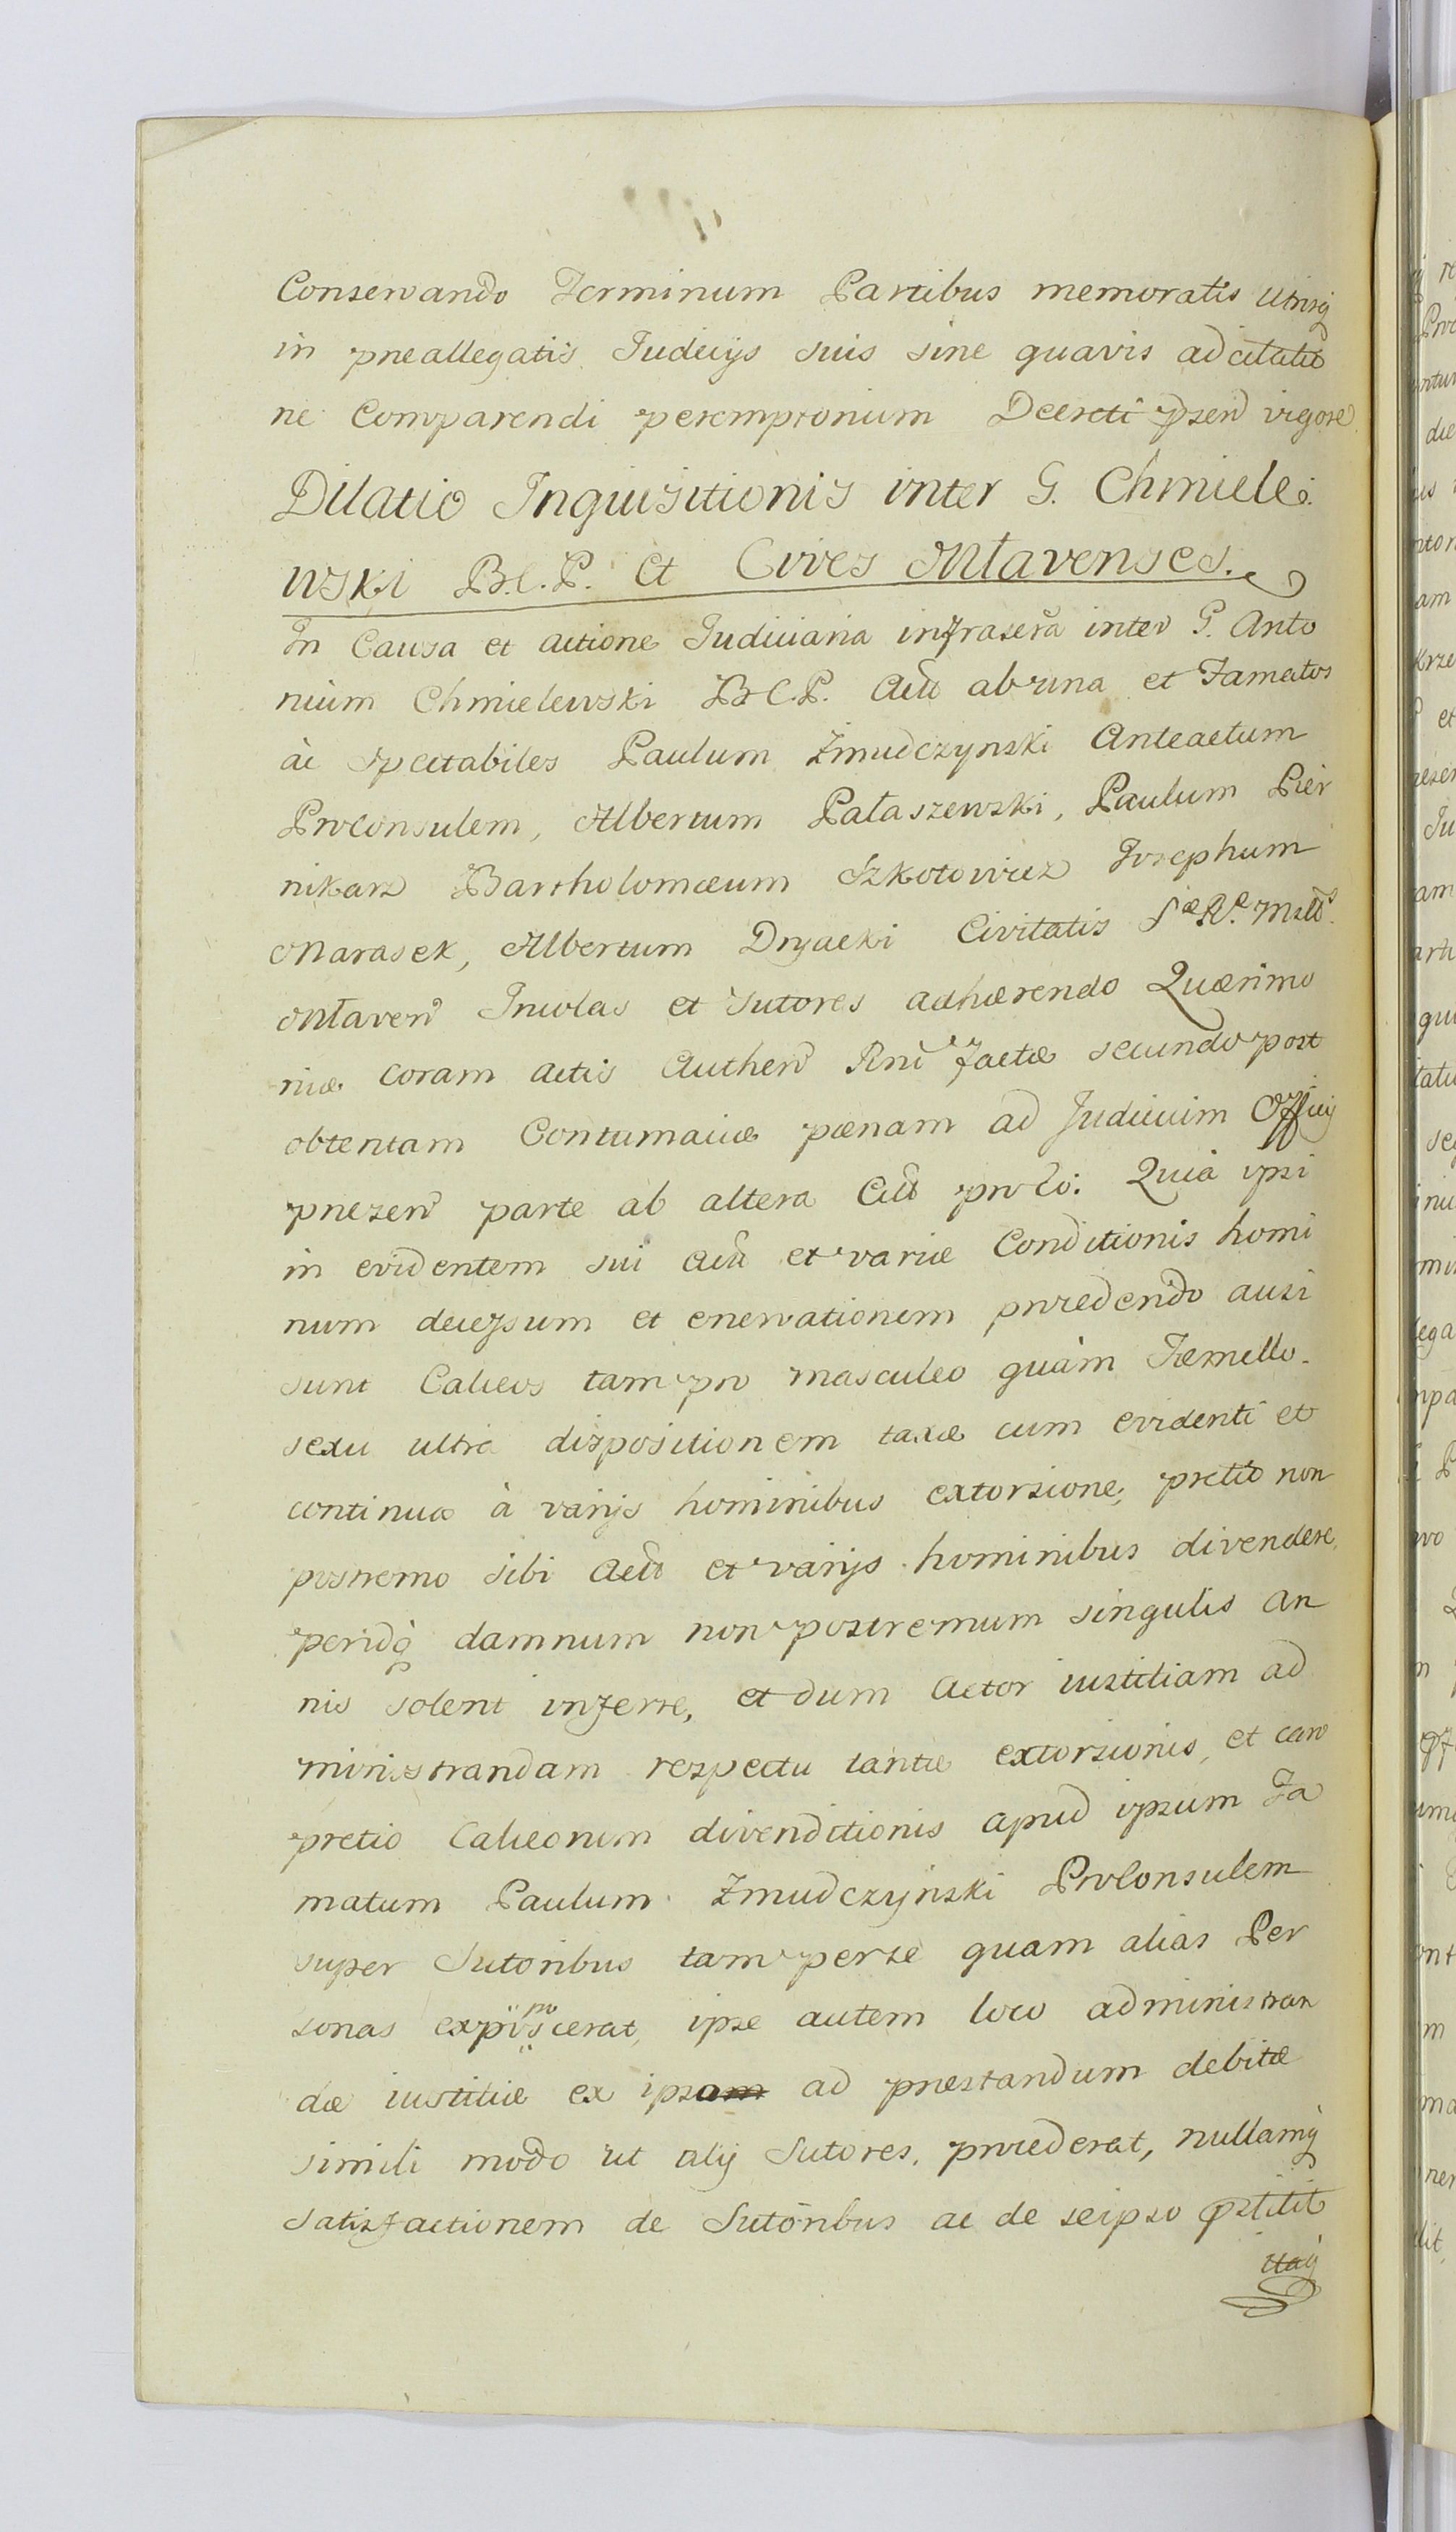 Conservando Terminum Partibus memoratis utrisq̃
in praeallegatis Judicijs suis sine quavis adcitatio
ne Comparendi peremptorium Decreti p̃sen̄ vigore.
Dilatio Inquisitionis inter G. Chmiele:
wski B.C.P. et Cives Mławenses.
In Causa et actione Judiciaria infrascr̃a inter G. Anto
nium Chmielewski B.C.P. Act̃ ab una et Famatos
ac Spectabiles Paulum Żmudczynski Anteactum
ProConsulem, Albertum Pałaszewski, Paulum Pier
nikarz Bartholomæum Szkotowicz Josephum
Marasek, Albertum Dryacki Civitatis S.æ R.æ Mttis
Młaven̄ Incolas et Sutores adhærendo Quærimo
niæ coram actis Authen̄ Rni factæ secundo post
obtentam Contumaciæ pænam ad Judicium Officij
præsen̄ parte ab altera Citt̃ pro eo: Quia ipsi
in evidentem sui Act̃ et variæ Conditionis homi
num decessum et enervationem procedendo ausi
sunt Calceos tam pro masculeo quàm Fæmello
sexu ultra dispositionem taxæ cum evidenti et
continua à varijs hominibus extorsione, pretio non
postremo sibi Act̃ et varijs hominibus divendere,
peridq̃ damnum non postremum singulis an
nis solent inferre, et dum Actor iustitiam ad
ministrandam respectu tantæ extorsionis, et caro
pretio Calceorum divenditionis apud ipsum Fa
matum Paulum Żmudczyński ProConsulem
super Sutoribus tam per se quam alias Per
sonas exposcerat, ipse autem loco administran
dæ iustitiæ ex ipsam ad præstandum debitæ
simili modo ut alij Sutores, procederat, nullamq̃
satisfactionem de Sutoribus ac de seipso p̃stitit
itaq̃